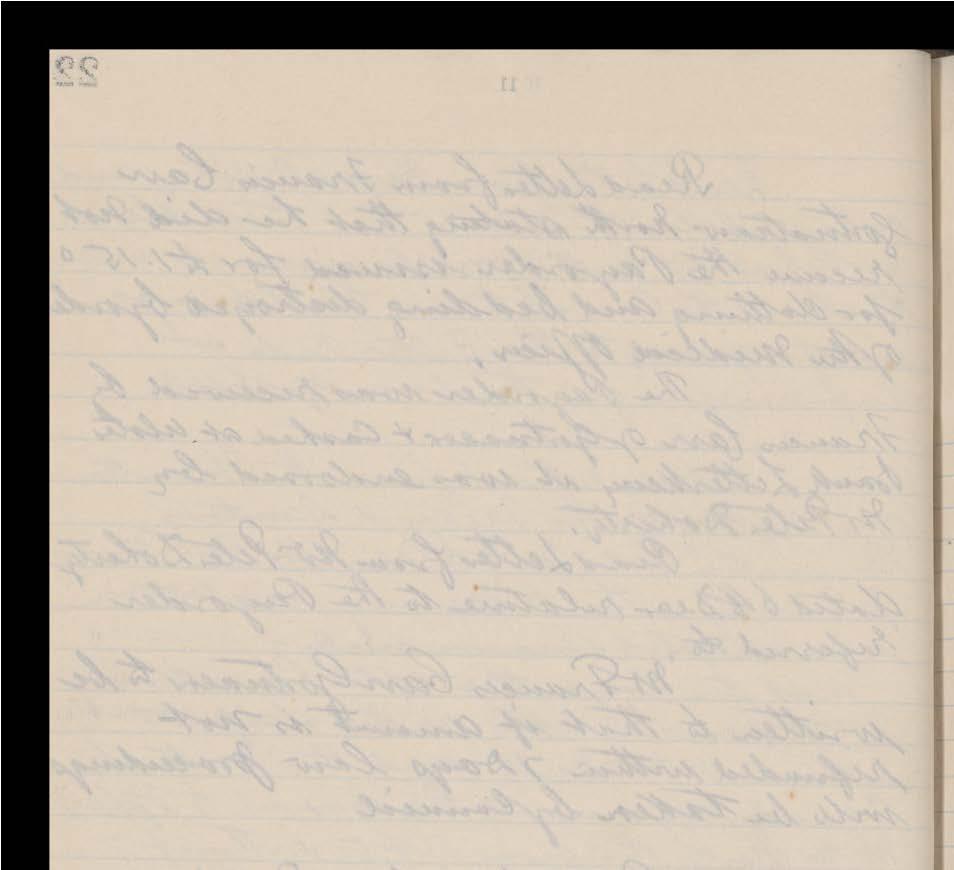 22
11
Read Letter from Francis Carr
Gortnatraw North stating that he did not
receive the Payorder issued for £1.15.0
for clothing and bedding destroyed by order
of the Medical Officer.
The Payorder was received by
Francis Carr Gortnacor & Cashed at Ulster
Bank Letterkenny it was endorsed by
Mr Peter Doherty.
Read Letter from Mr Peter Doherty
dated 6th Dear relative to the Payorder
referred to.
Mr Francis Carr Gortnacor to be
written to that if amount is not
refunded within 7 Days Law proceedings
will be taken by Council